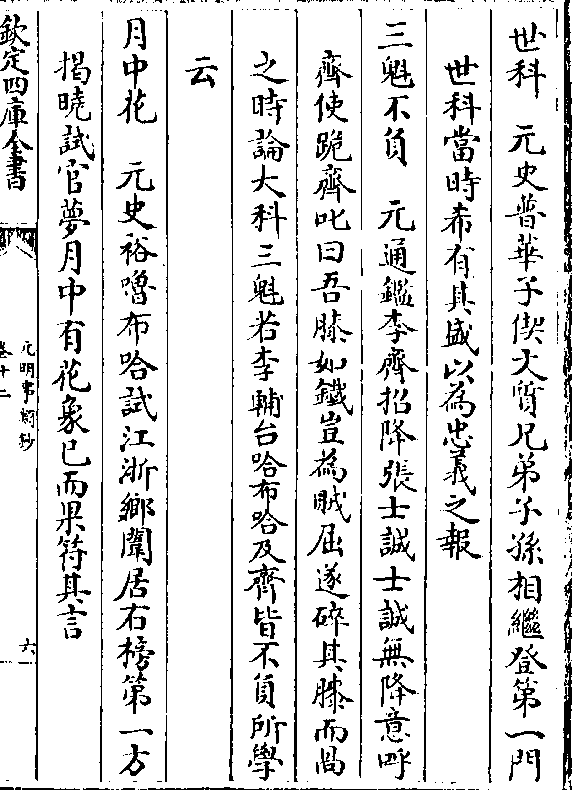 世科　元史普華子偰文質兄弟子孫相繼登第一門
世科當時希有其盛以為忠義之報
三魁不負　元通鑑李齊招降張士誠士誠無降意呼
齊使跪齊叱曰吾膝如鐵豈為賊屈遂碎其膝而咼
之時論大科三魁若李輔台哈布哈及齊皆不負所學
云
月中花　元史裕嚕布哈試江浙鄉闈居右榜第一方
揭曉試官夢月中有花象已而果符其言
欽定四庫全書
元明事類鈔
卷十二
六